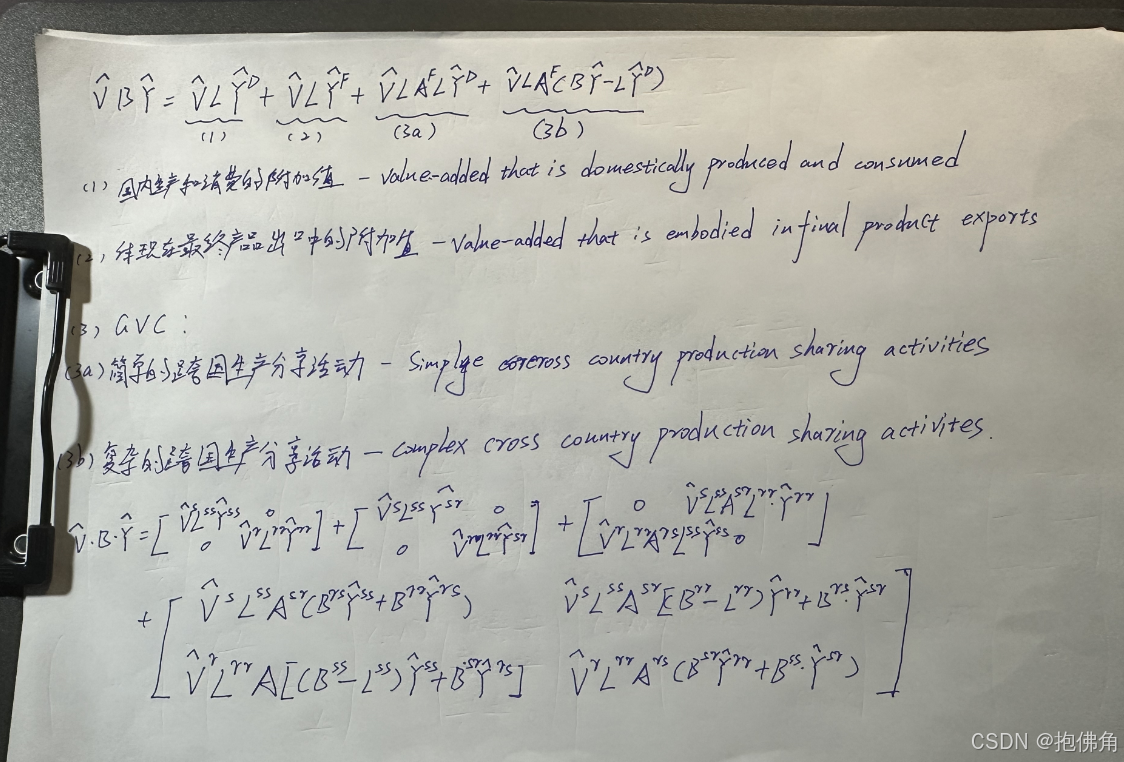 V̂BŶ = V̂LŶᴰ + V̂LŶᶠ + V̂LAᶠLŶᴰ + V̂LAᶠ(BŶ-LŶᴰ)
(1) (2) (3a) (3b)
(1) 国内生产和消费的附加值 – value-added that is domestically produced and consumed
(2) 体现在最终产品出口中的附加值 – value-added that is embodied in final product exports
(3) GVC:
(3a) 简单的跨国生产分享活动 – Simple cross country production sharing activities
(3b) 复杂的跨国生产分享活动 – complex cross country production sharing activites.
V̂·B·Ŷ = [V̂ˢLˢˢŶˢˢ 0] + [V̂ˢLˢˢŶˢʳ 0] + [0 V̂ˢLˢˢAˢʳLʳʳ·Ŷʳʳ]
[0 V̂ʳLʳʳŶʳʳ] [0 V̂ʳLʳʳŶˢʳ] [V̂ʳLʳʳAʳˢLˢˢŶˢˢ 0]
+ [V̂ˢLˢˢAˢʳ(BʳˢŶˢˢ+BʳʳŶʳˢ) V̂ˢLˢˢAˢʳ[(Bʳʳ-Lʳʳ)Ŷʳʳ+Bʳˢ·Ŷˢʳ]
V̂ʳLʳʳA[(Bˢˢ-Lˢˢ)Ŷˢˢ+BˢʳŶʳˢ] V̂ʳLʳʳAʳˢ(BˢʳŶʳʳ+Bˢˢ·Ŷˢʳ)]
CSDN @抱佛角